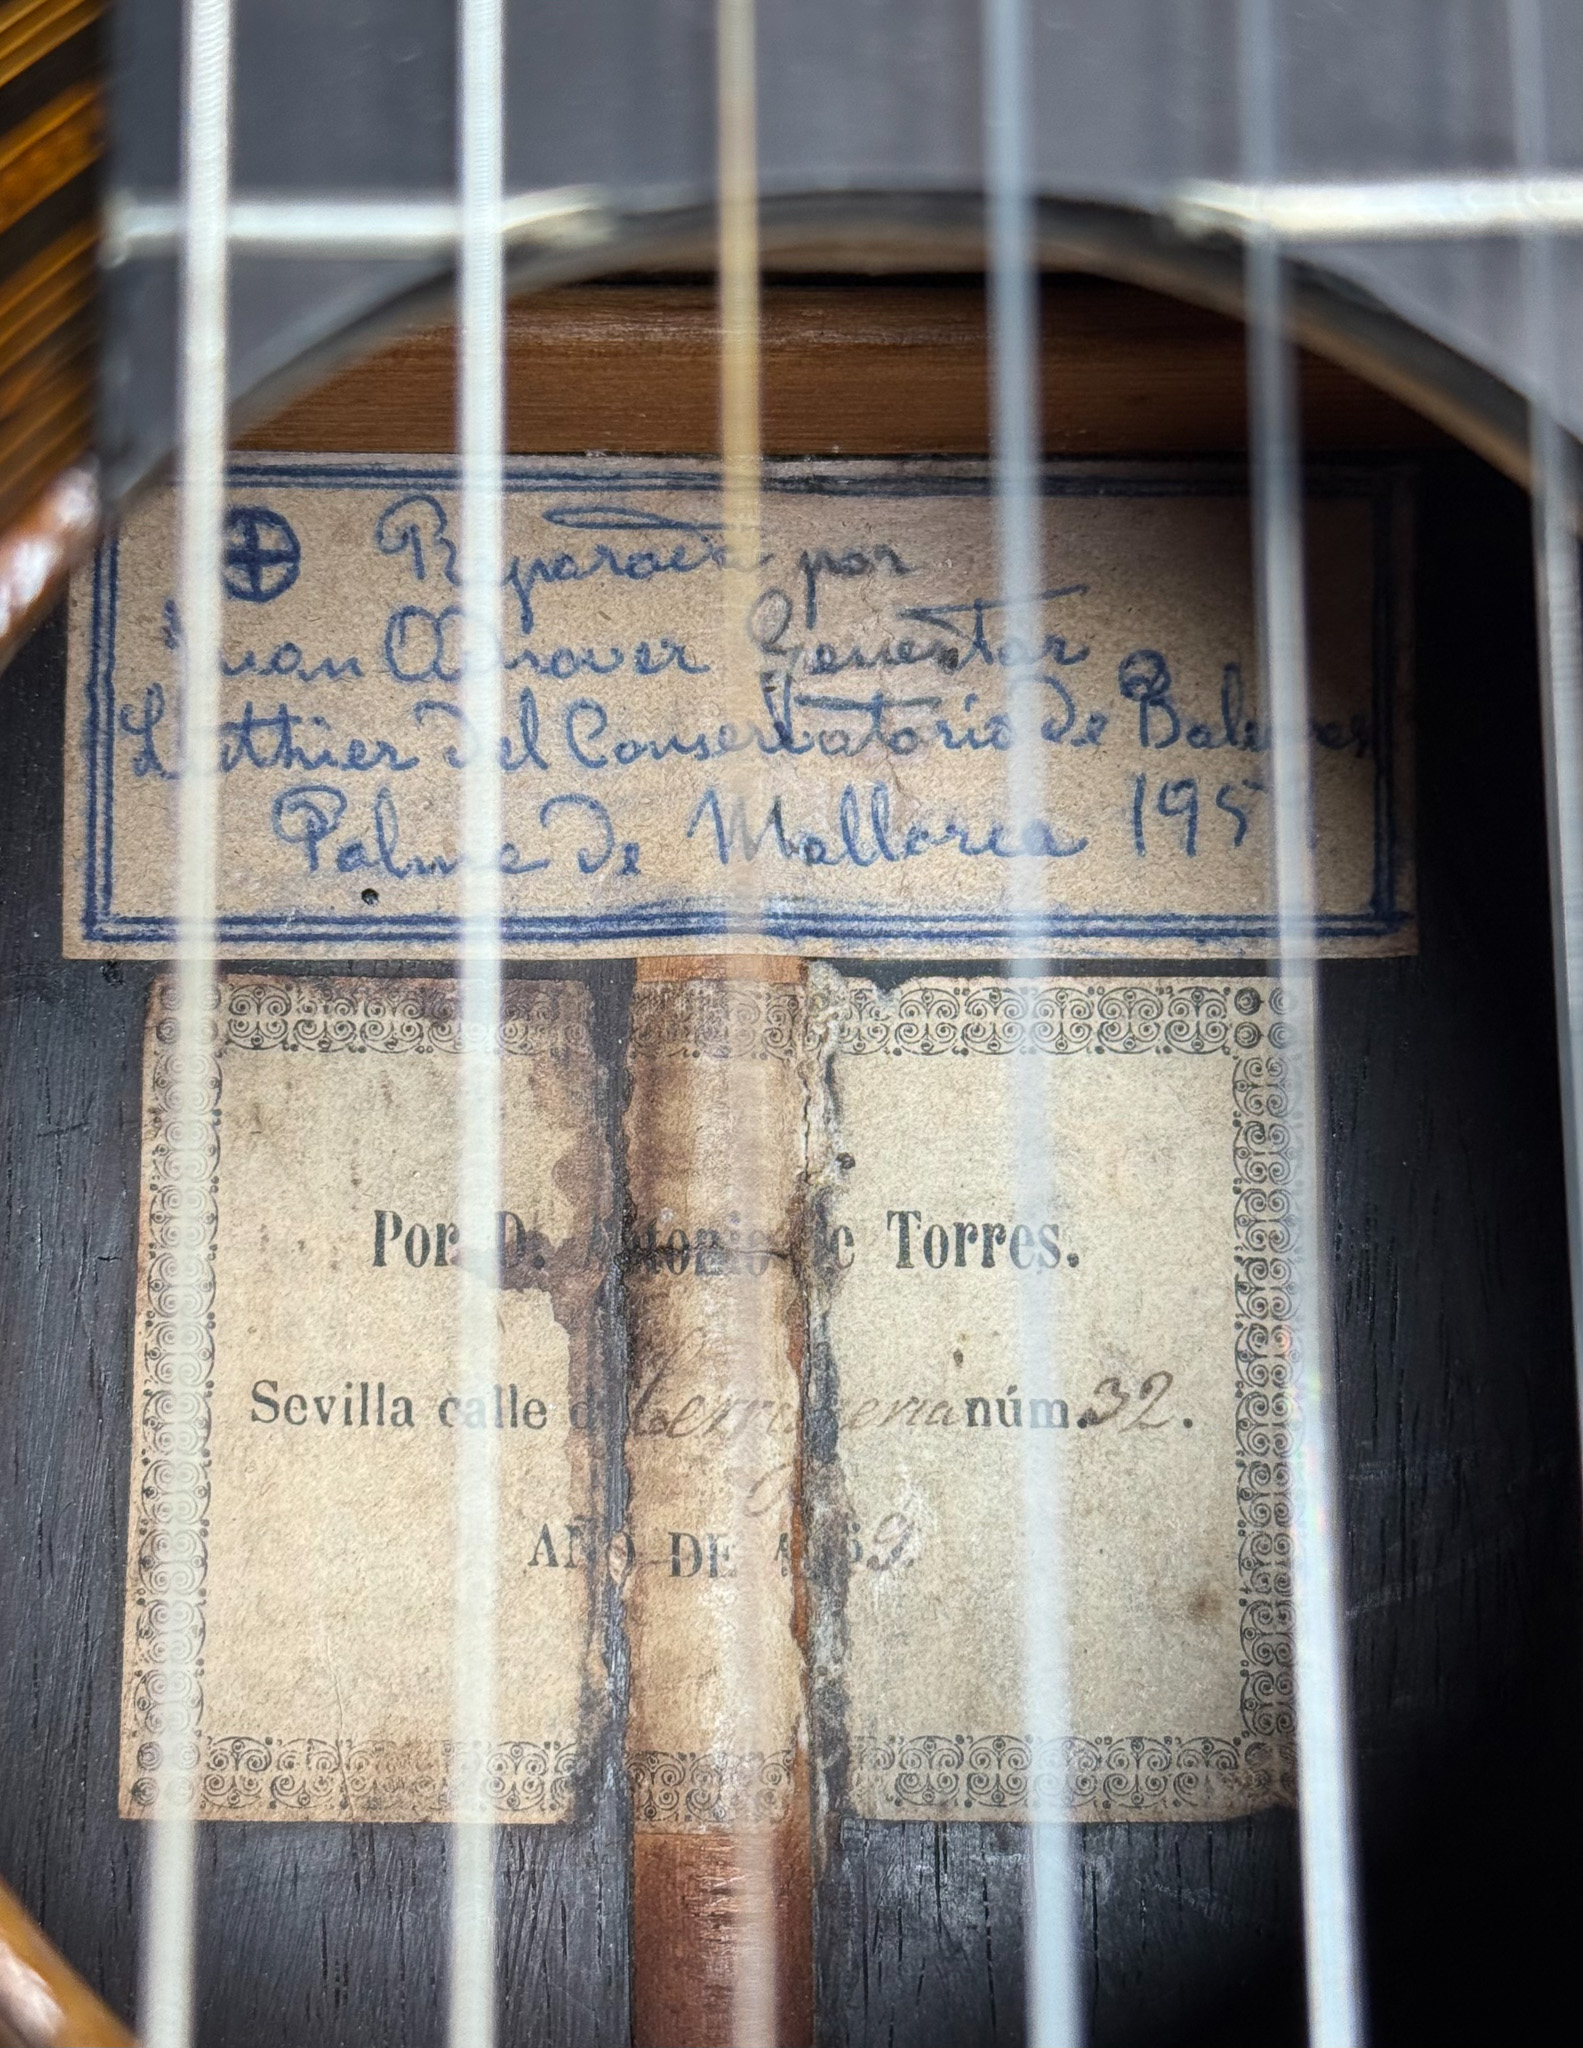 Reparada por
Juan Adrover Genestar
Luthier del Conservatorio de Baleares
Palma de Mallorca 195
Por D. Antonio de Torres.
Sevilla calle de Cerragería núm. 32.
AÑO DE 1869